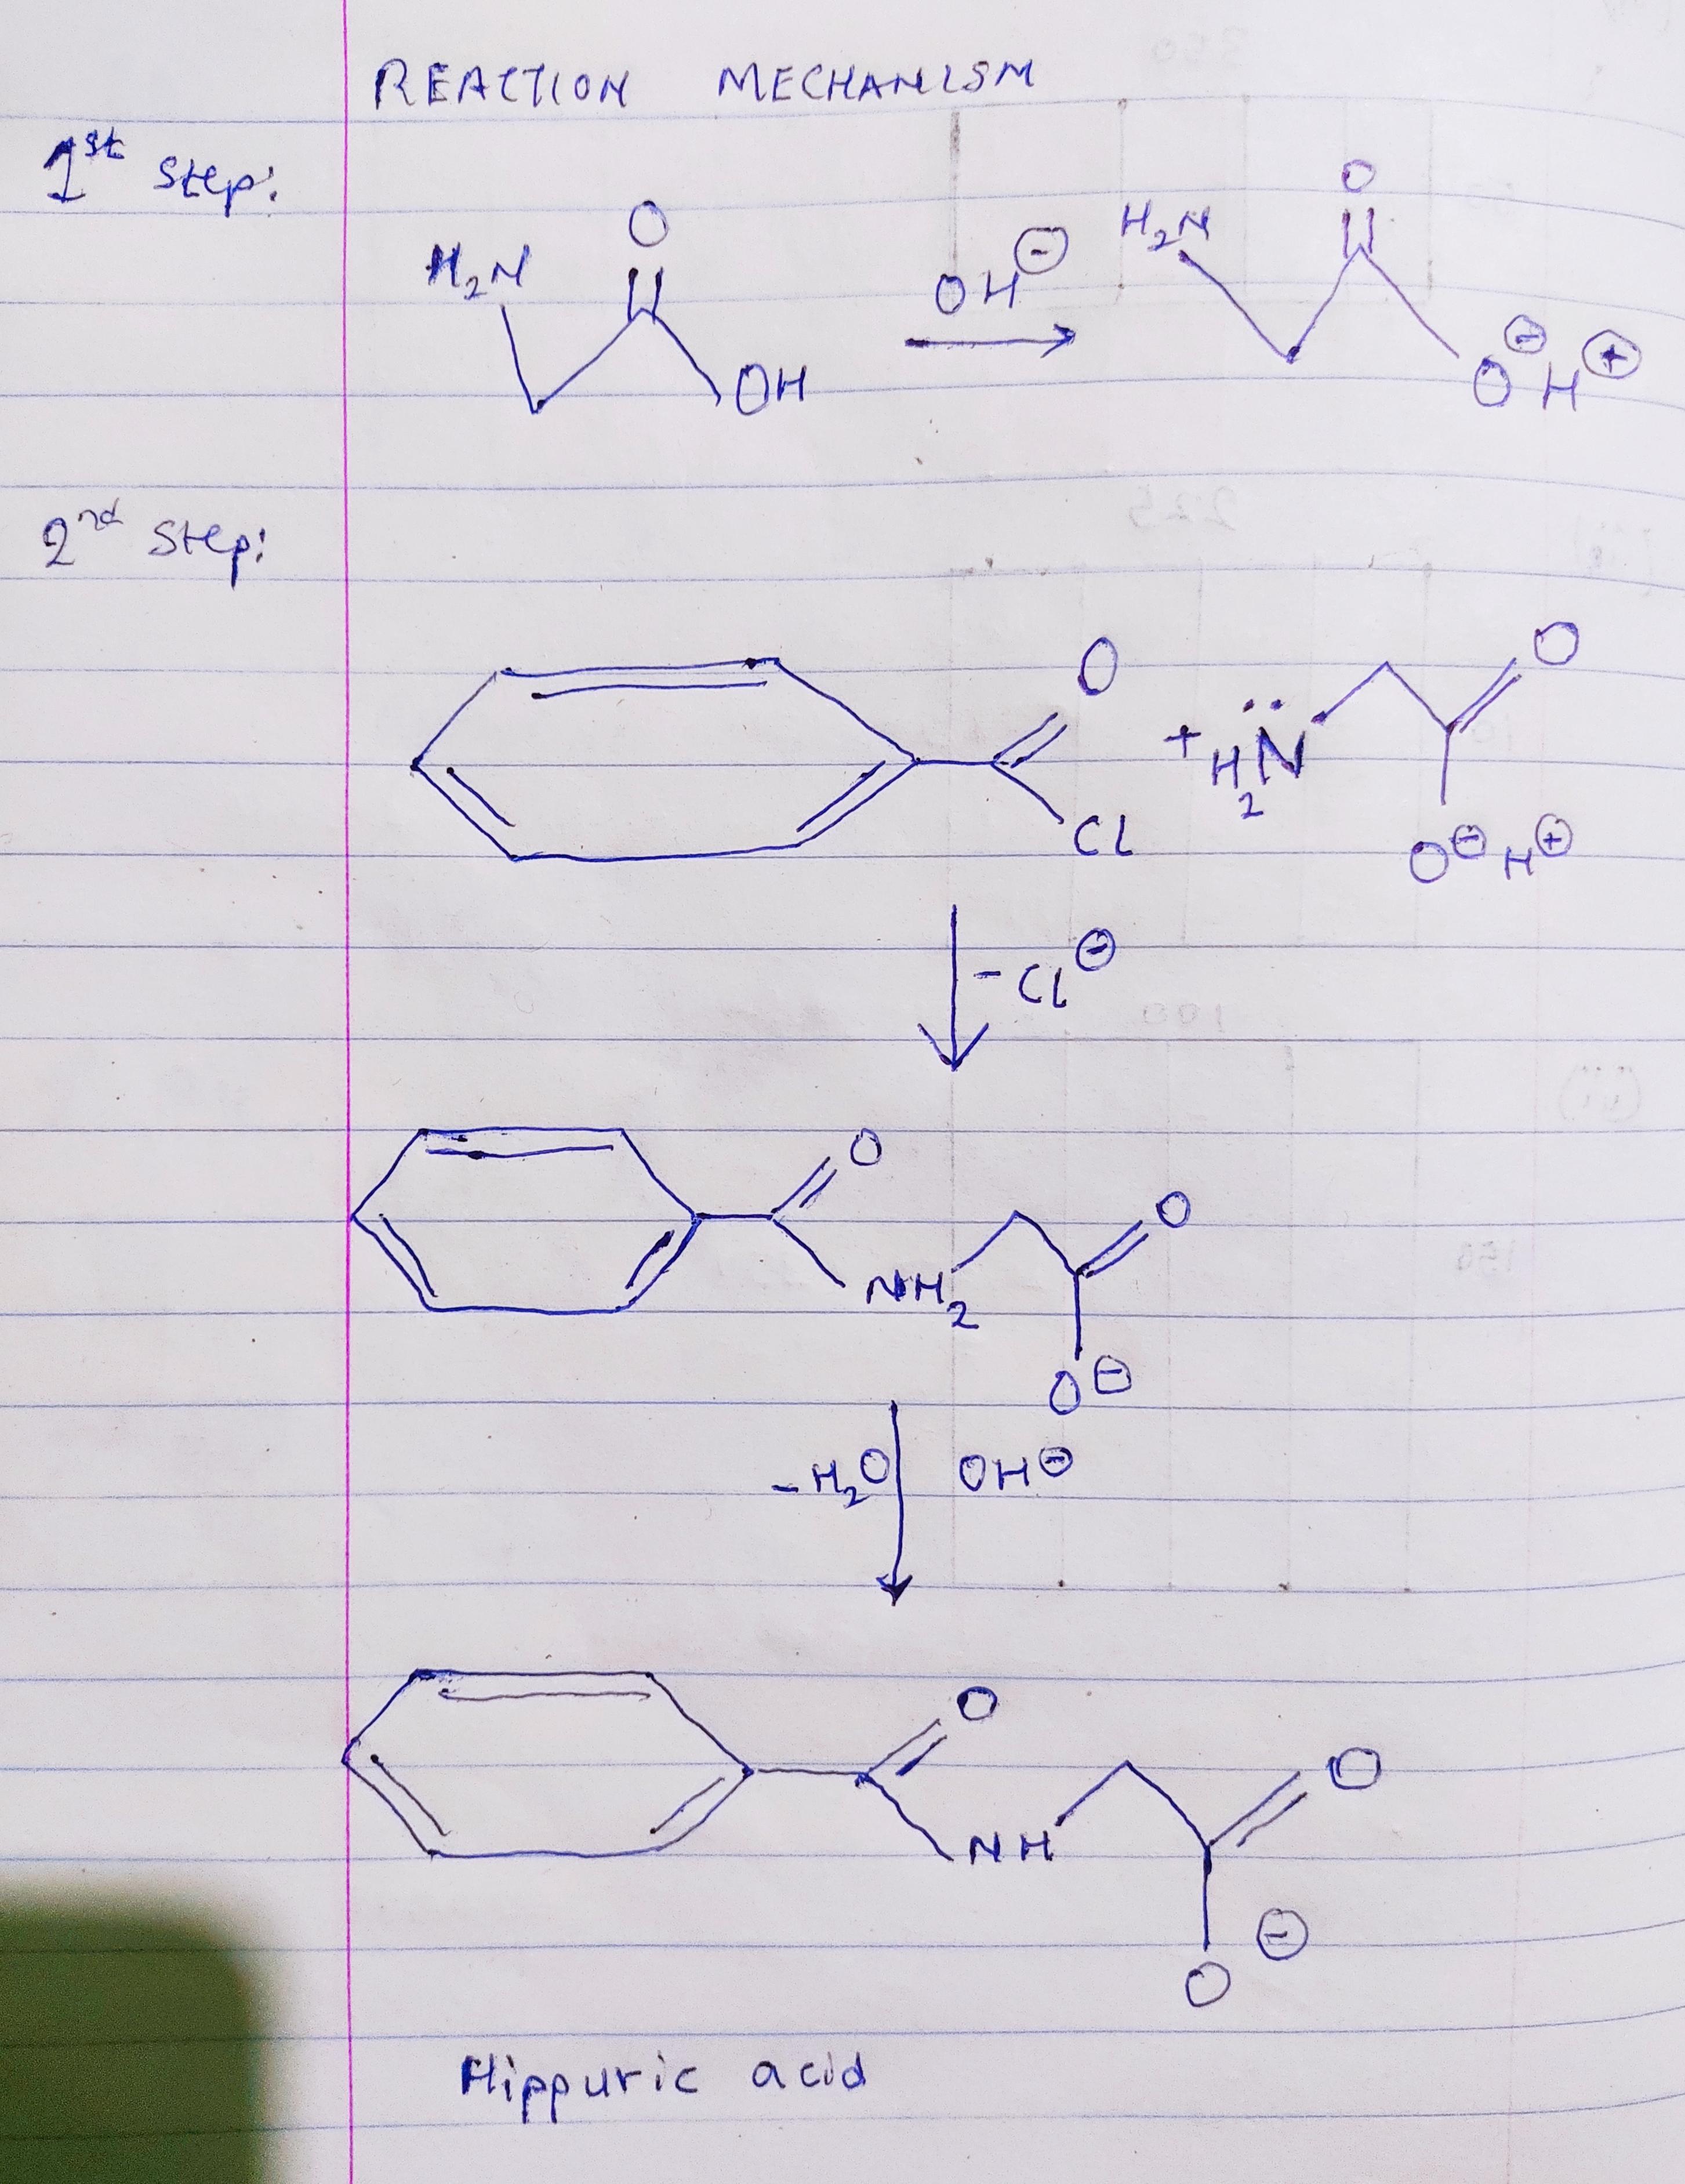 REACTION MECHANISM
1st Step:
H2N O OH
OH⊖
H2N O O⊖ H⊕
2nd Step:
O Cl + H2N̈ O O⊖ H⊕
-Cl⊖
O NH2 O O⊖
-H2O OH⊖
O NH O O⊖
Hippuric acid